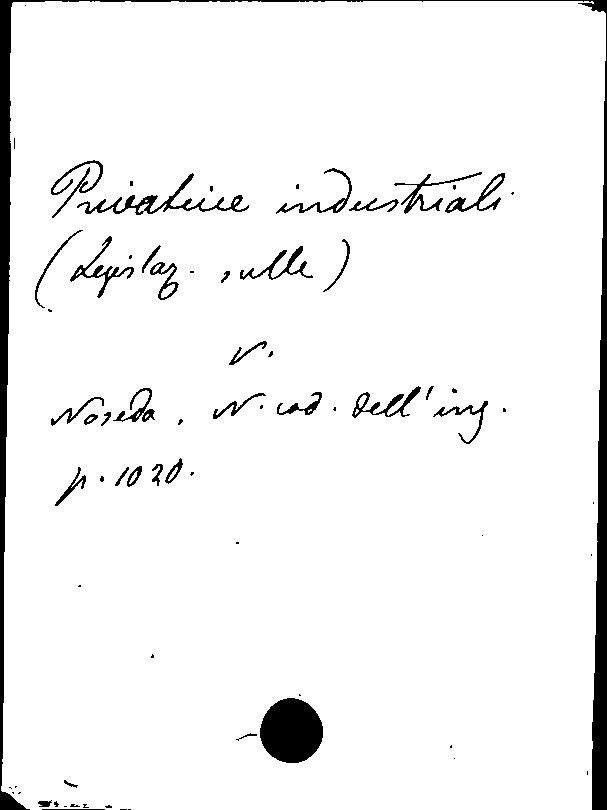 Privative industriali
(Legislaz. sulle)
V.
Noseda, N. cod. dell'ing.
p. 1020.